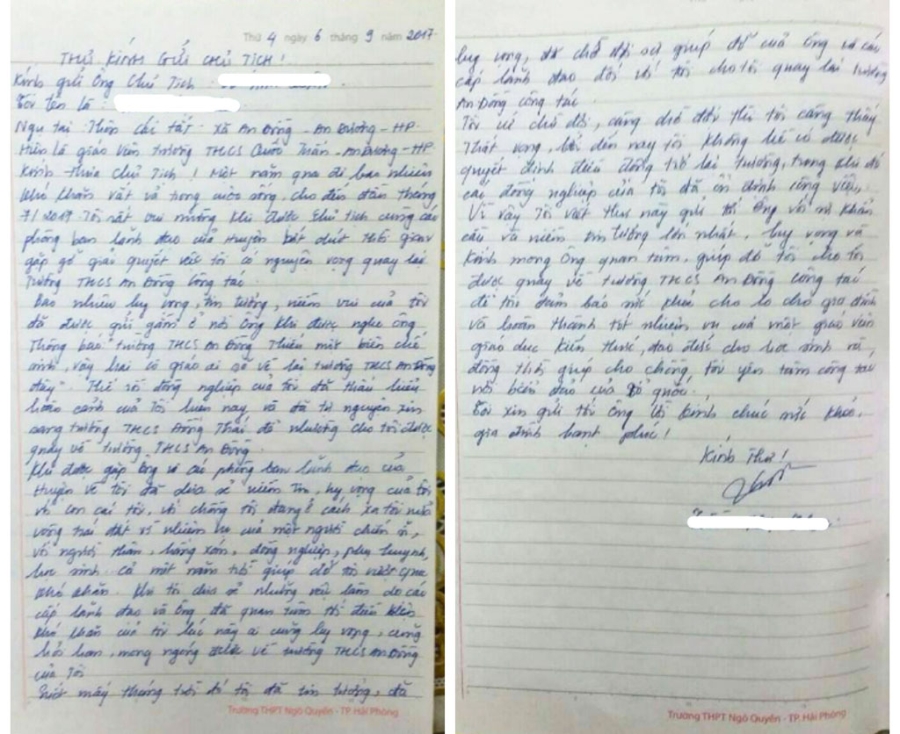 Thứ 4 ngày 6 tháng 9 năm 2017
THƯ KÍNH GỬI CHỦ TỊCH!
Kính gửi Ông Chủ Tịch
Tôi tên là:
Ngụ tại: Thôn Chi tất - Xã An Đồng - An Dương - HP.
Hiện là giáo viên trường THCS Quốc Tuấn - An Dương - HP.
Kính thưa Chủ Tịch! Một năm qua đi bao nhiên
khó khăn vất vả trong cuộc sống, cho đến đầu tháng
7/2017 Tôi rất vui mừng khi được Chủ Tịch cùng các
phòng ban lãnh đạo của Huyện bớt chút thời gian
gặp gỡ giải quyết việc tôi có nguyện vọng quay lại
Trường THCS An Đồng Công tác.
Bao nhiêu hy vọng, tin tưởng, niềm vui của tôi
đã được gửi gắm ở nơi Ông khi được nghe ông
Thông báo "trường THCS An Đồng Thiếu một biên chế
anh, vậy hai cô giáo ai sẽ về lại trường THCS An Đồng
đây". Thế rồi đồng nghiệp của tôi đã thấu hiểu
hoàn cảnh của Tôi lúc này và đã tự nguyện xin
sang trường THCS Đồng Thái để nhường cho tôi được
quay về trường THCS An Đồng.
Khi được gặp Ông và các phòng ban lãnh đạo của
Huyện về tôi đã chia sẻ niềm tin, hy vọng của tôi
với con cái tôi, với chồng tôi đang ở cách xa tôi nửa
vòng trái đất vì nhiệm vụ của một người chiến sĩ,
với người thân, hàng xóm, đồng nghiệp, phụ huynh,
học sinh cả một năm trời giúp đỡ tôi vượt qua
khó khăn. Khi tôi chia sẻ những việc làm do các
cấp lãnh đạo và Ông đã quan tâm tới điều kiện
khó khăn của tôi lúc này ai cũng hy vọng, cũng
hỏi han, mong ngóng về trường THCS An Đồng
của Tôi
Suốt mấy tháng trời đó tôi đã tin tưởng, đã
Trường THPT Ngô Quyền - TP. Hải Phòng
hy vọng, đã chờ đợi sự giúp đỡ của Ông và các
cấp lãnh đạo đối với tôi cho tôi quay lại trường
An Đồng công tác.
Tôi cứ chờ đợi, càng chờ đợi thì tôi càng thấy
Thất vọng, bởi đến nay tôi không hề có được
quyết định điều động trở lại trường, trong khi đó
các đồng nghiệp của tôi đã ổn định công việc.
Vì vậy Tôi viết thư này gửi tới Ông với sự khẩn
cầu và niềm tin tưởng lớn nhất, hy vọng và
Kính mong Ông quan tâm, giúp đỡ tôi cho tôi
được quay về trường THCS An Đồng công tác
để tôi đảm bảo sức khoẻ chăm lo cho gia đình
và hoàn thành tốt nhiệm vụ của một giáo viên
giáo dục kiến thức, đạo đức cho học sinh và
đồng thời giúp cho chồng tôi yên tâm công tác
nơi biển đảo của Tổ quốc.
Tôi xin gửi tới Ông lời kính chúc sức khoẻ,
gia đình hạnh phúc!
Kính Thư!
Trường THPT Ngô Quyền - TP. Hải Phòng